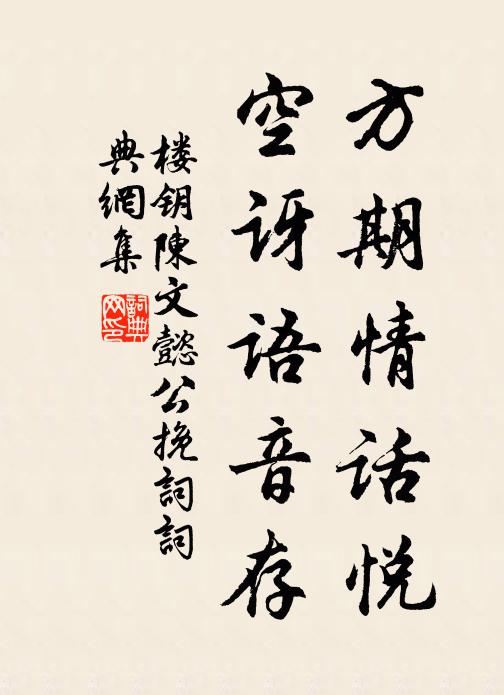 方期情话悦
空讶语音存
楼钥陳文懿公挽詞詞
典網集
詞典网印